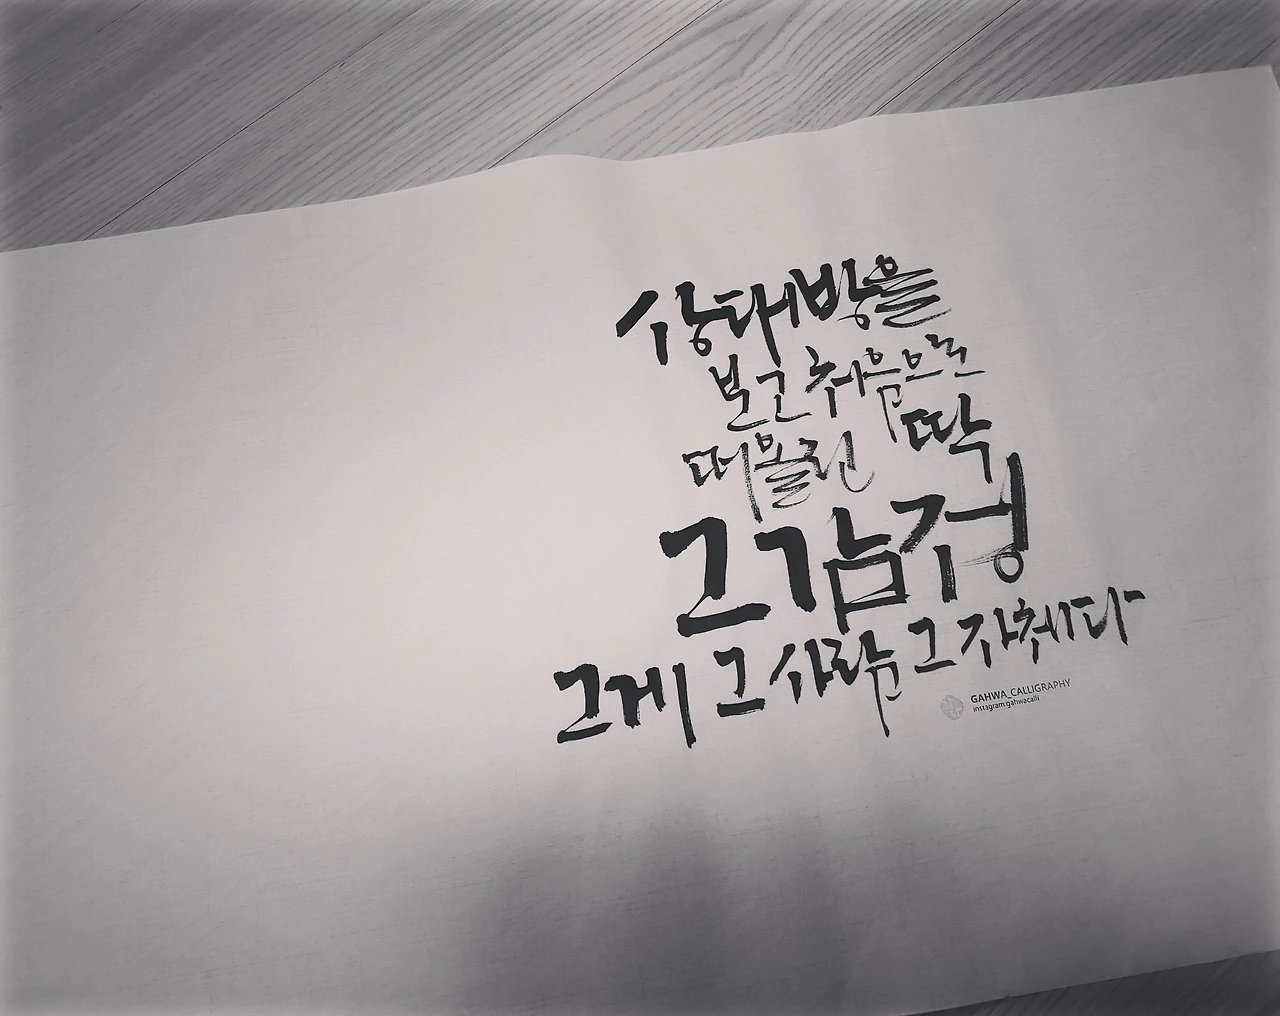 상대방을
보고 처음으로
떠올린 딱
그 감정
그게 그 사람 그 자체다
GAHWA_CALLIGRAPHY
instagram gahwacalli